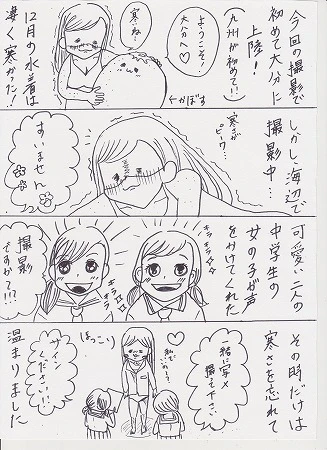 今回の撮影で
初めて大分に
上陸!
(九州が初めて!!)
ようこそ!
大分へ♡
寒いね…
←かぼす
12月の水着は
凄く寒かった!
しかし、海辺で
撮影中…
寒さが
ピーク…
すいません
可愛い二人の
中学生の
女の子が声
をかけてくれた
キラキラ
キラキラ
撮影
ですか?!!
その時だけは
寒さを忘れて
一緒に写メ
撮って下さい
私で
いいの?
ほっこり
サイン
ください!!
温まりました